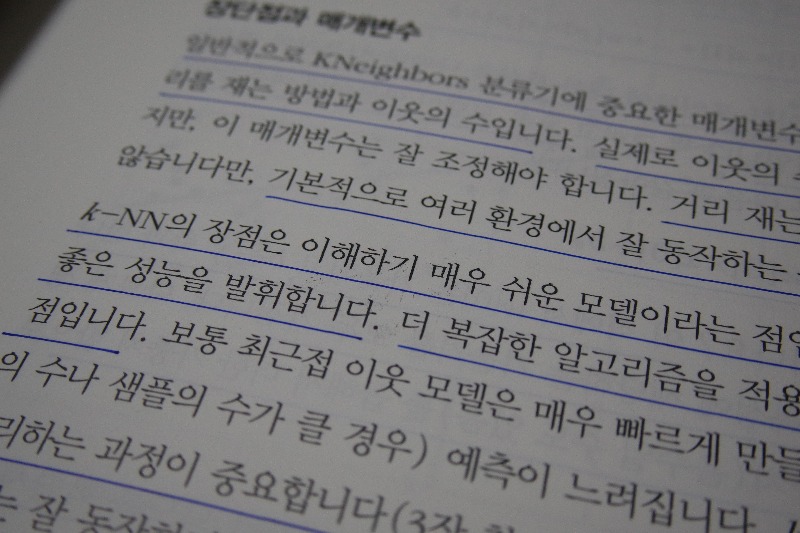 장단점과 매개변수
일반적으로 KNeighbors 분류기에 중요한 매개변수
리를 재는 방법과 이웃의 수입니다. 실제로 이웃의
지만, 이 매개변수는 잘 조정해야 합니다. 거리 재는
않습니다만, 기본적으로 여러 환경에서 잘 동작하는
k-NN의 장점은 이해하기 매우 쉬운 모델이라는 점
좋은 성능을 발휘합니다. 더 복잡한 알고리즘을 적용
점입니다. 보통 최근접 이웃 모델은 매우 빠르게 만들
의 수나 샘플의 수가 클 경우) 예측이 느려집니다.
리하는 과정이 중요합니다(3장
는 잘